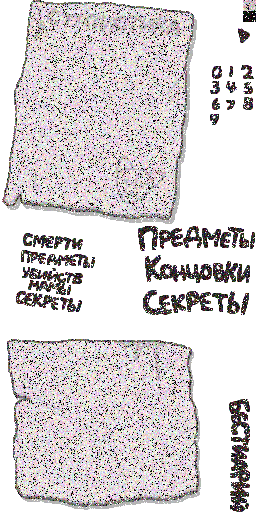 0 1 2
3 4 5
6 7 8
9
СМЕРТИ
ПРЕДМЕТЫ
УБИЙСТВ
МАМЫ
СЕКРЕТЫ
ПРЕДМЕТЫ
КОНЦОВКИ
СЕКРЕТЫ
БЕСТИАРИЙ